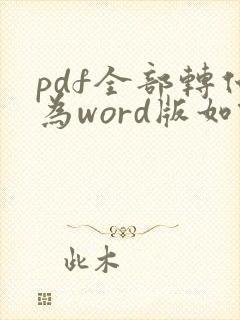 pdf全部轉化
為word版如
此木